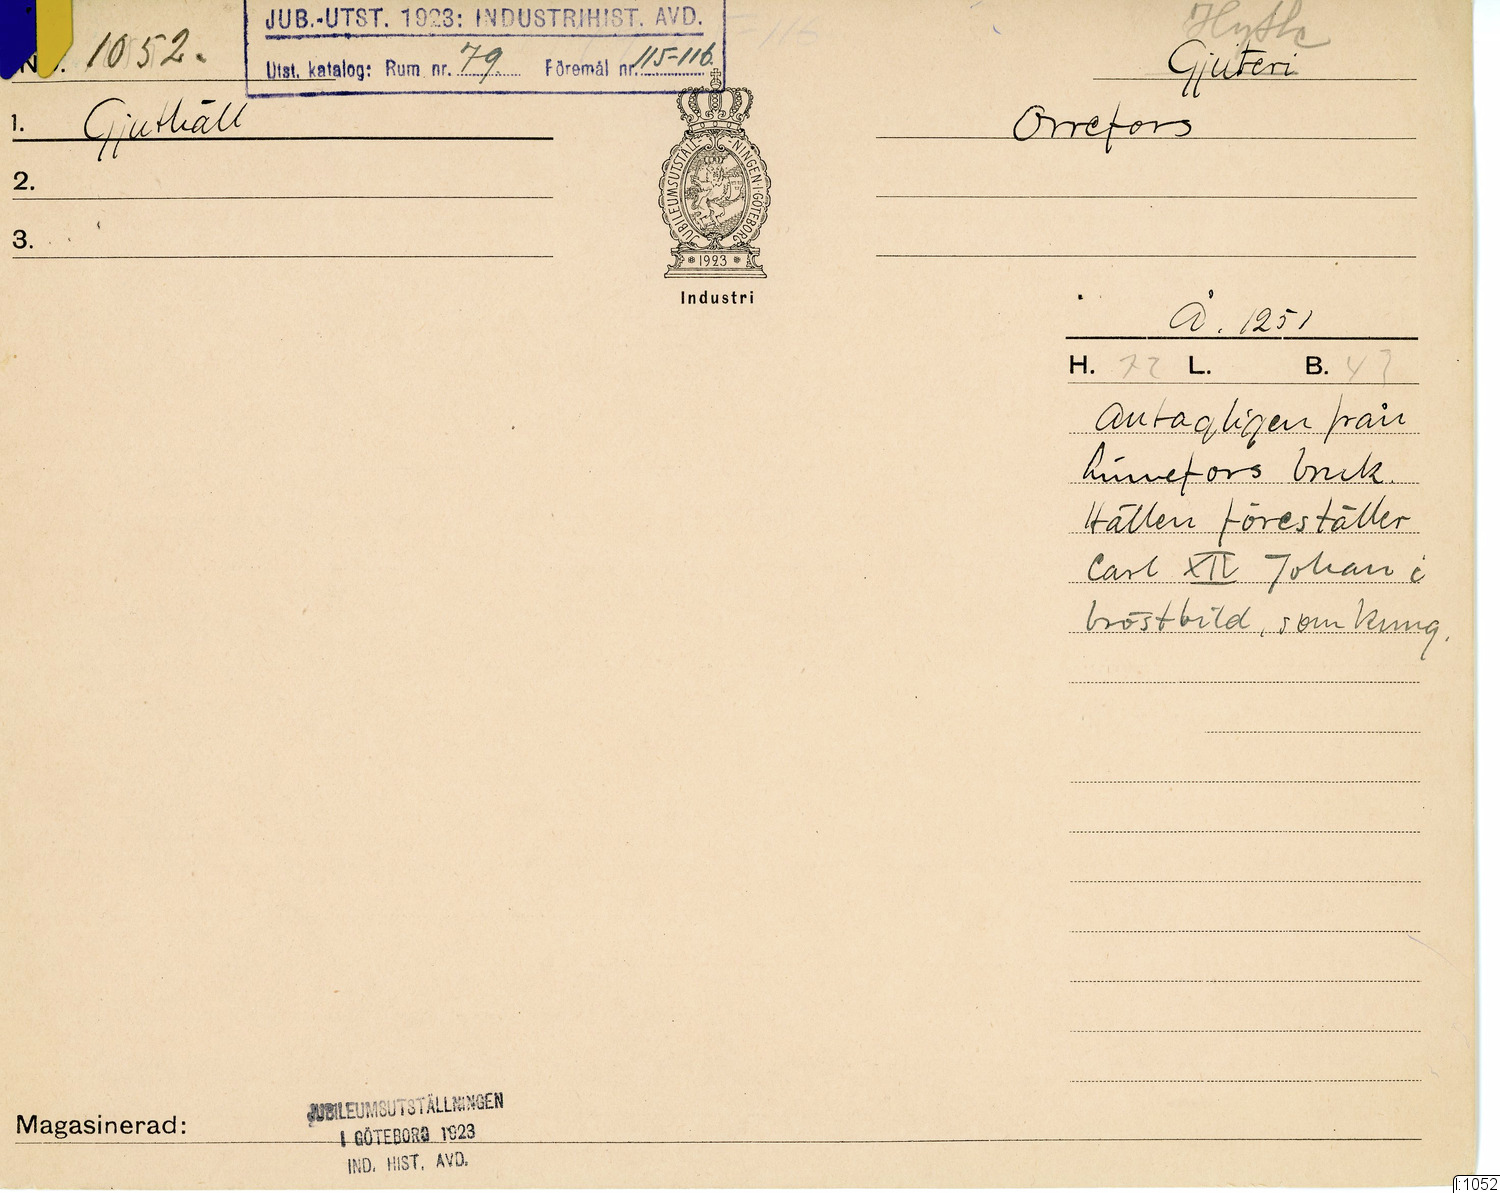 JUB.-UTST. 1923: INDUSTRIHIST. AVD.
Utst. katalog: Rum nr. 79 Föremål nr. 115-116
Hytte
Gjuteri
No. 1052.
1. Gjuthäll
Orrefors
2.
3.
JUBILEUMSUTSTÄLL-NINGEN·I·GÖTEBORG
1923
Industri
Å. 1251
H. 72 L. B. 47
Antagligen från
bruk.
Hällen föreställer
Carl XII Johan i
bröstbild, som kung.
Magasinerad:
JUBILEUMSUTSTÄLLNINGEN
I GÖTEBORG 1923
IND. HIST. AVD.
I:1052